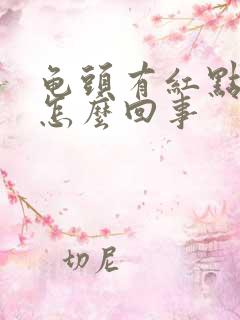 龟頭有紅點
怎麼回事
切尼